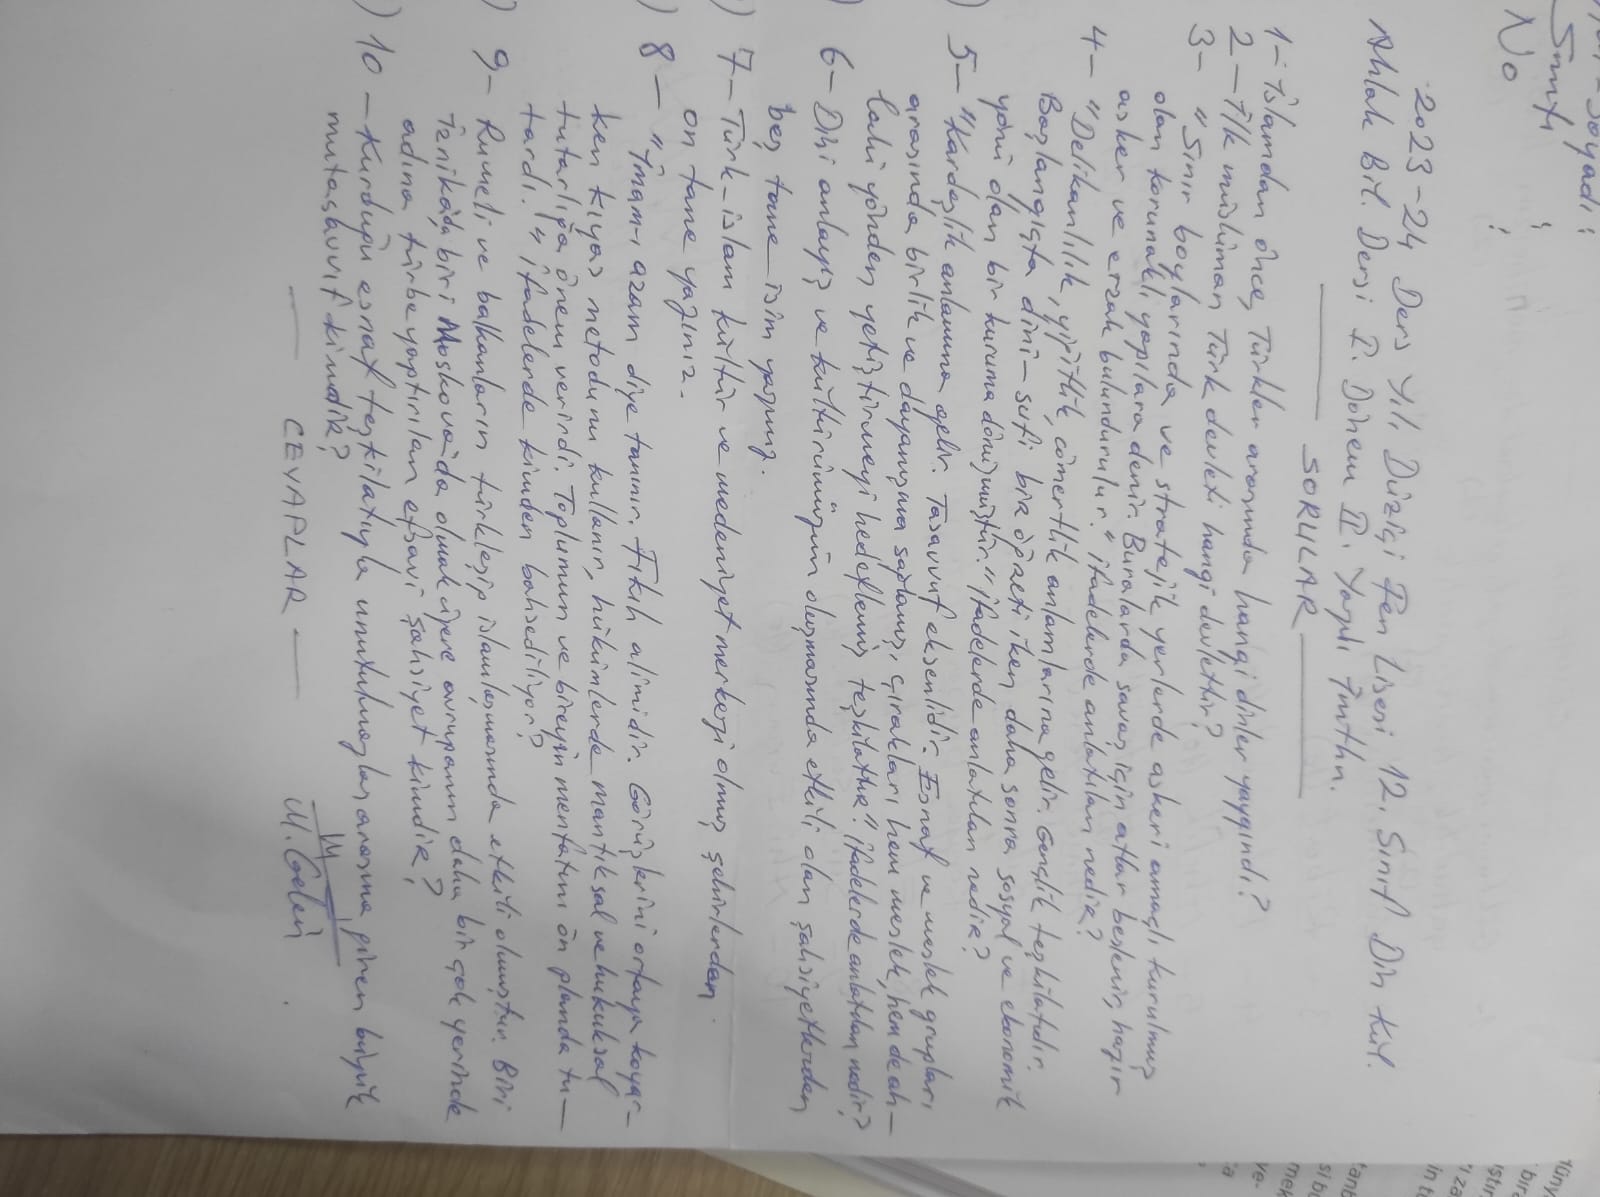 Soyadı :
Sınıfı :
No :
2023-24 Ders Yılı Düziçi Fen Lisesi 12. Sınıf Din Kül.
Ahlak Bil. Dersi I. Dönem II. Yazılı İmtihn.
SORULAR
1- İslamdan önce, Türkler arasında hangi dinler yaygındı?
2- İlk müslüman Türk devleti hangi devlettir?
3- "Sınır boylarında ve stratejik yerlerde askeri amaçlı kurulmuş
olan korunaklı yapılara denir. Buralarda savaş için atlar beslenir, hazır
asker ve erzak bulundurulur." ifadelerde anlatılan nedir?
4- "Delikanlılık, yiğitlik, cömertlik anlamlarına gelir. Gençlik teşkilatıdır.
Başlangıçta dini-sufi bir öğreti iken daha sonra sosyal ve ekonomik
yönü olan bir kuruma dönüşmüştür." ifadelerde anlatılan nedir?
5- "Kardeşlik anlamına gelir. Tasavvuf eksenlidir. Esnaf ve meslek grupları
arasında birlik ve dayanışma sağlamış, çırakları hem meslek, hem de ah-
laki yönden yetiştirmeyi hedeflemiş teşkilattır." ifadelerde anlatılan nedir?
6- Dini anlayış ve kültürümüzün oluşmasında etkili olan şahsiyetlerden
beş tane isim yazınız.
7- Türk-islam kültür ve medeniyet merkezi olmuş şehirlerden
on tane yazınız.
8- "İmam-ı azam diye tanınır. Fıkıh alimidir. Görüşlerini ortaya koyar-
ken kıyas metodunu kullanır, hükümlerde mantıksal ve hukuksal
tutarlığa önem verirdi. Toplumun ve bireyin menfatını ön planda tu-
tardı." ifadelerde kimden bahsediliyor?
9- Rumeli ve balkanların türkleşip islamlaşmasında etkili olmuştur. Biri
Tenikada, biri Moskovada olmak üzere avrupanın daha bir çok yerinde
adına türbe yaptırılan efsavi şahsiyet kimdir?
10- Kurduğu esnaf teşkilatıyla unutulmazlar arasına giren büyük
mutasavvıf kimdir?
CEVAPLAR
M. Gelen